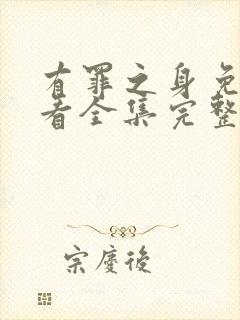 有罪之身免
看全集完整
宗慶後